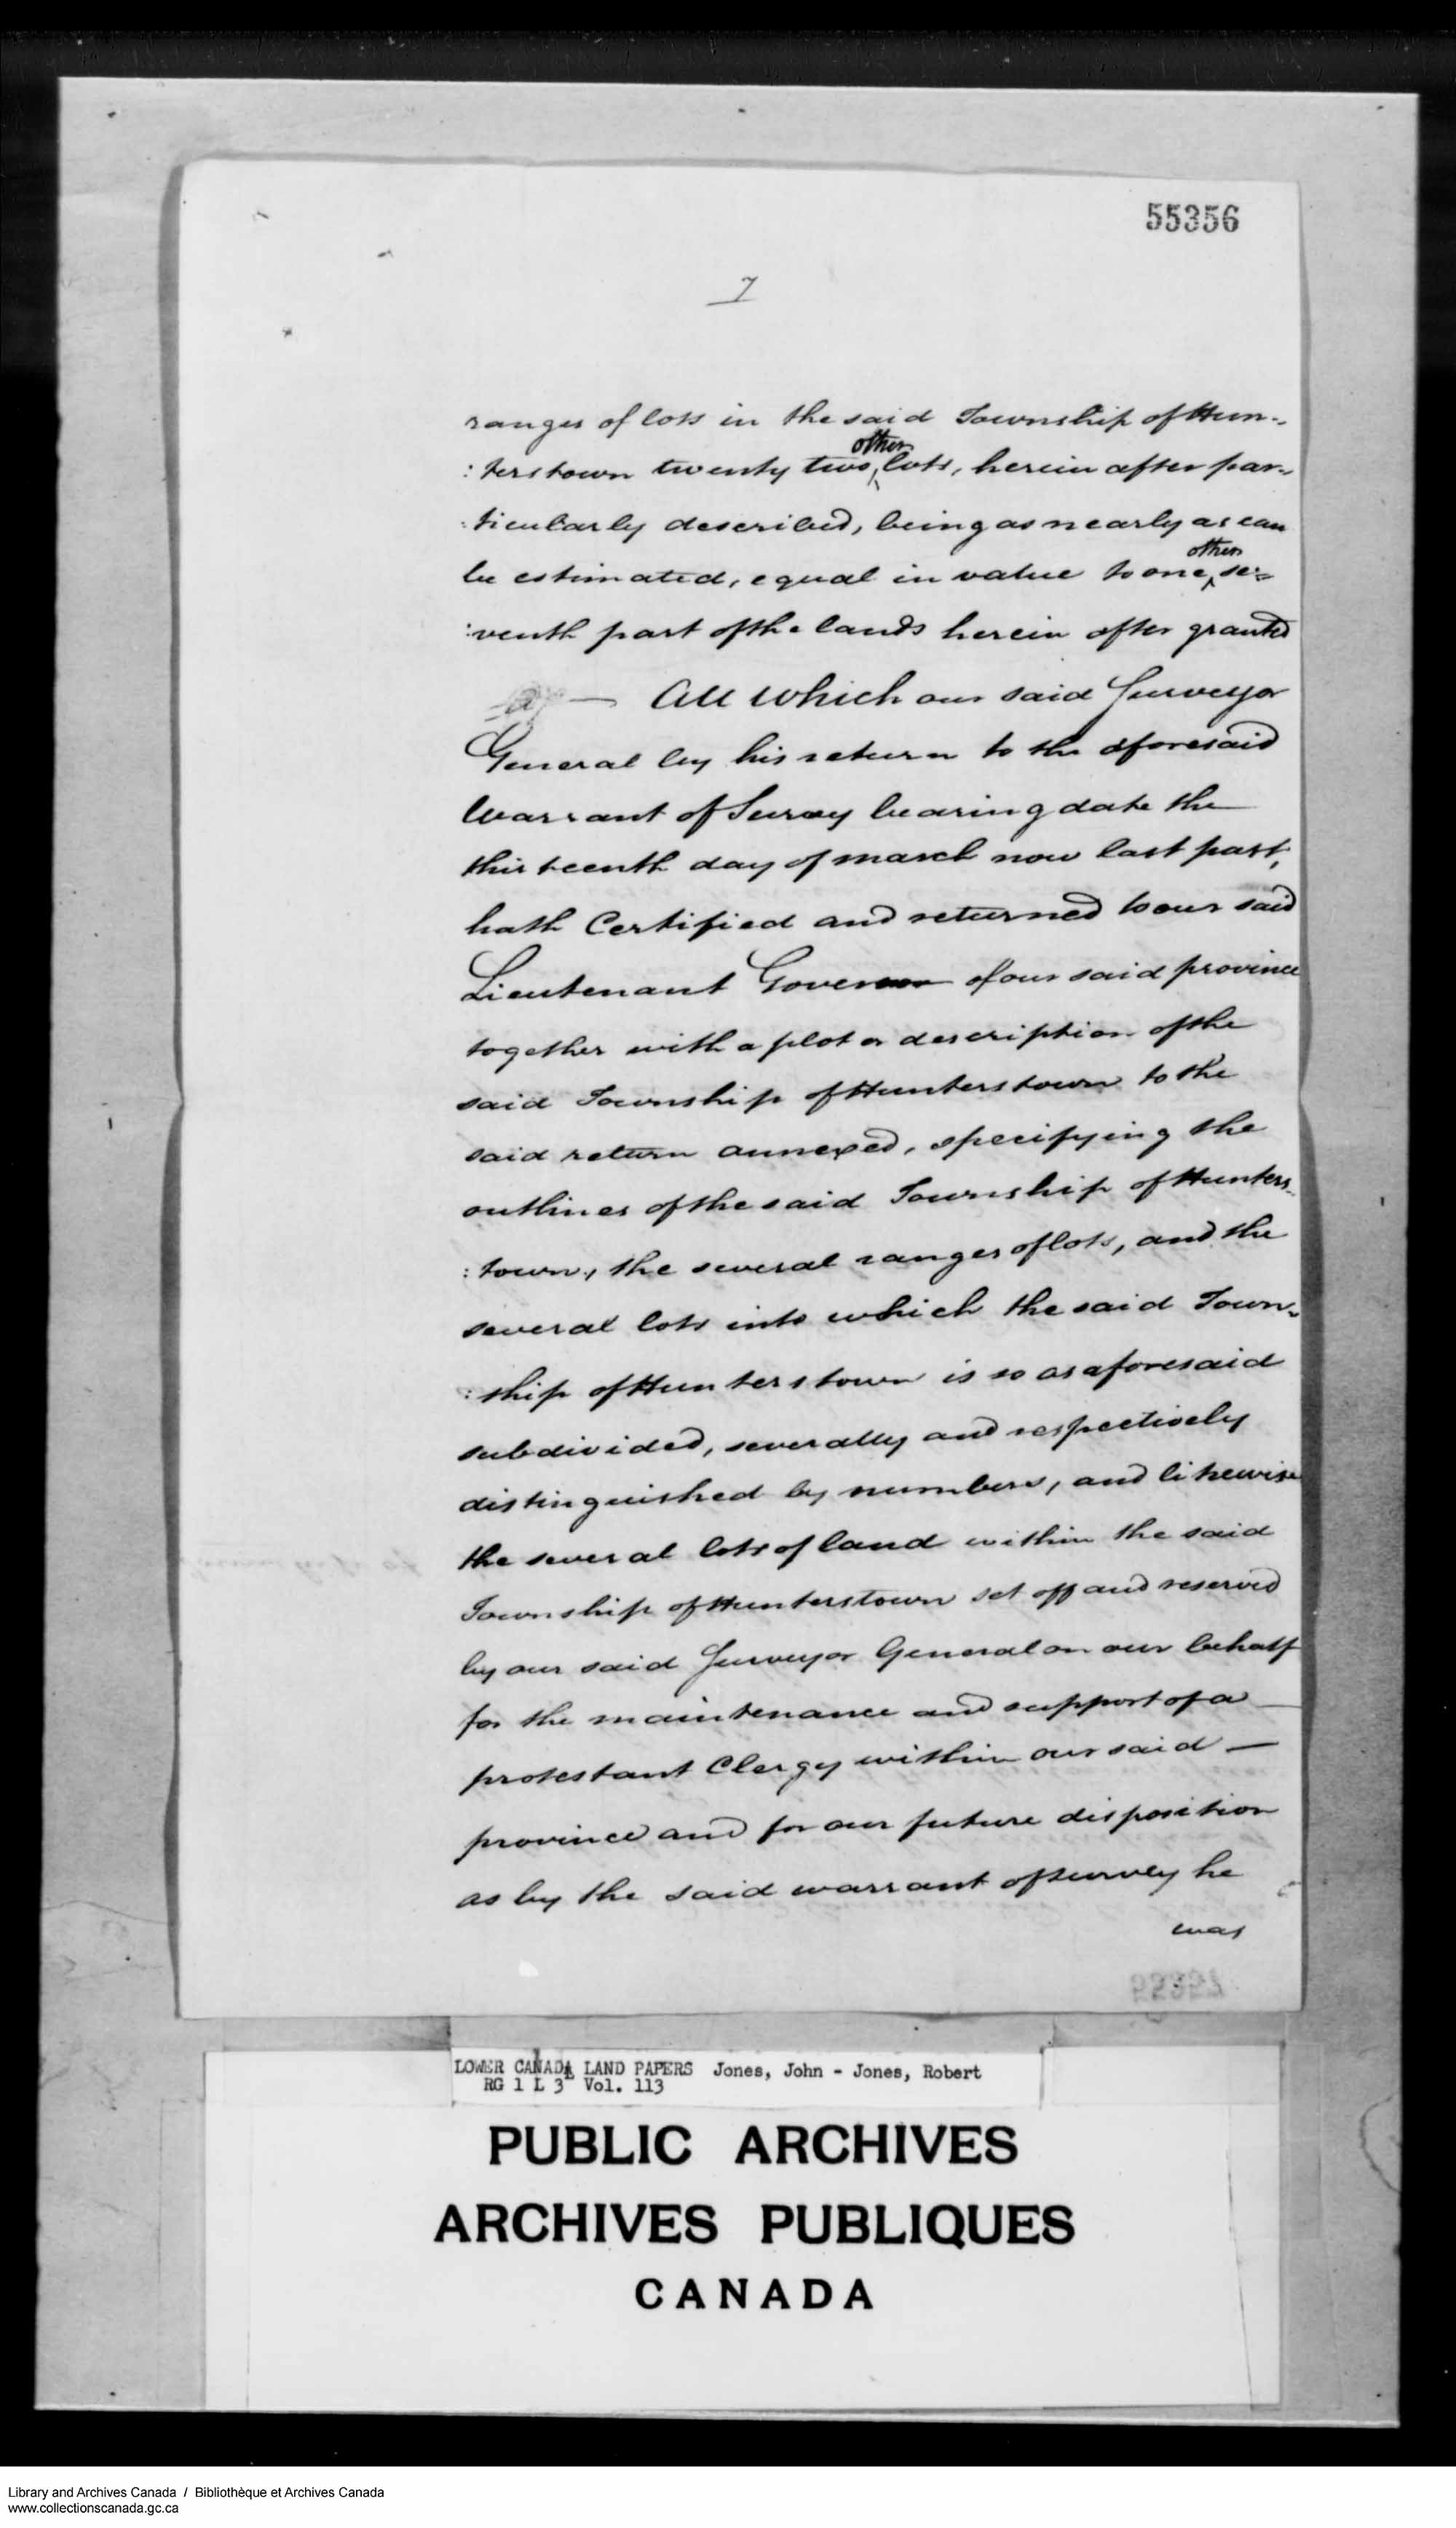 55356
7
ranges of lots in the said Township of Hun-
: terstown twenty two other lots, herein after par-
: ticularly described, being as nearly as can
be estimated, equal in value to one other se:
: venth part of the lands herein after granted
— All which our said Surveyor
General by his return to the aforesaid
Warrant of Survey bearing date the
thirteenth day of march now last past,
hath Certified and returned to our said
Lieutenant Governor of our said province
together with a plot or description of the
said Township of Hunterstown to the
said return annexed, specifying the
outlines of the said Township of Hunters-
: town, the several ranges of lots, and the
several lots into which the said Town-
: ship of Hunterstown is so as aforesaid
subdivided, severally and respectively
distinguished by numbers, and likewise
the several lots of land within the said
Township of Hunterstown set off and reserved
by our said Surveyor General on our behalf
for the maintenance and support of a —
protestant Clergy within our said —
province and for our future disposition
as by the said warrant of survey he
was
LOWER CANADA LAND PAPERS Jones, John - Jones, Robert
RG 1 L 3 Vol. 113
PUBLIC ARCHIVES
ARCHIVES PUBLIQUES
CANADA
Library and Archives Canada / Bibliothèque et Archives Canada
www.collectionscanada.gc.ca